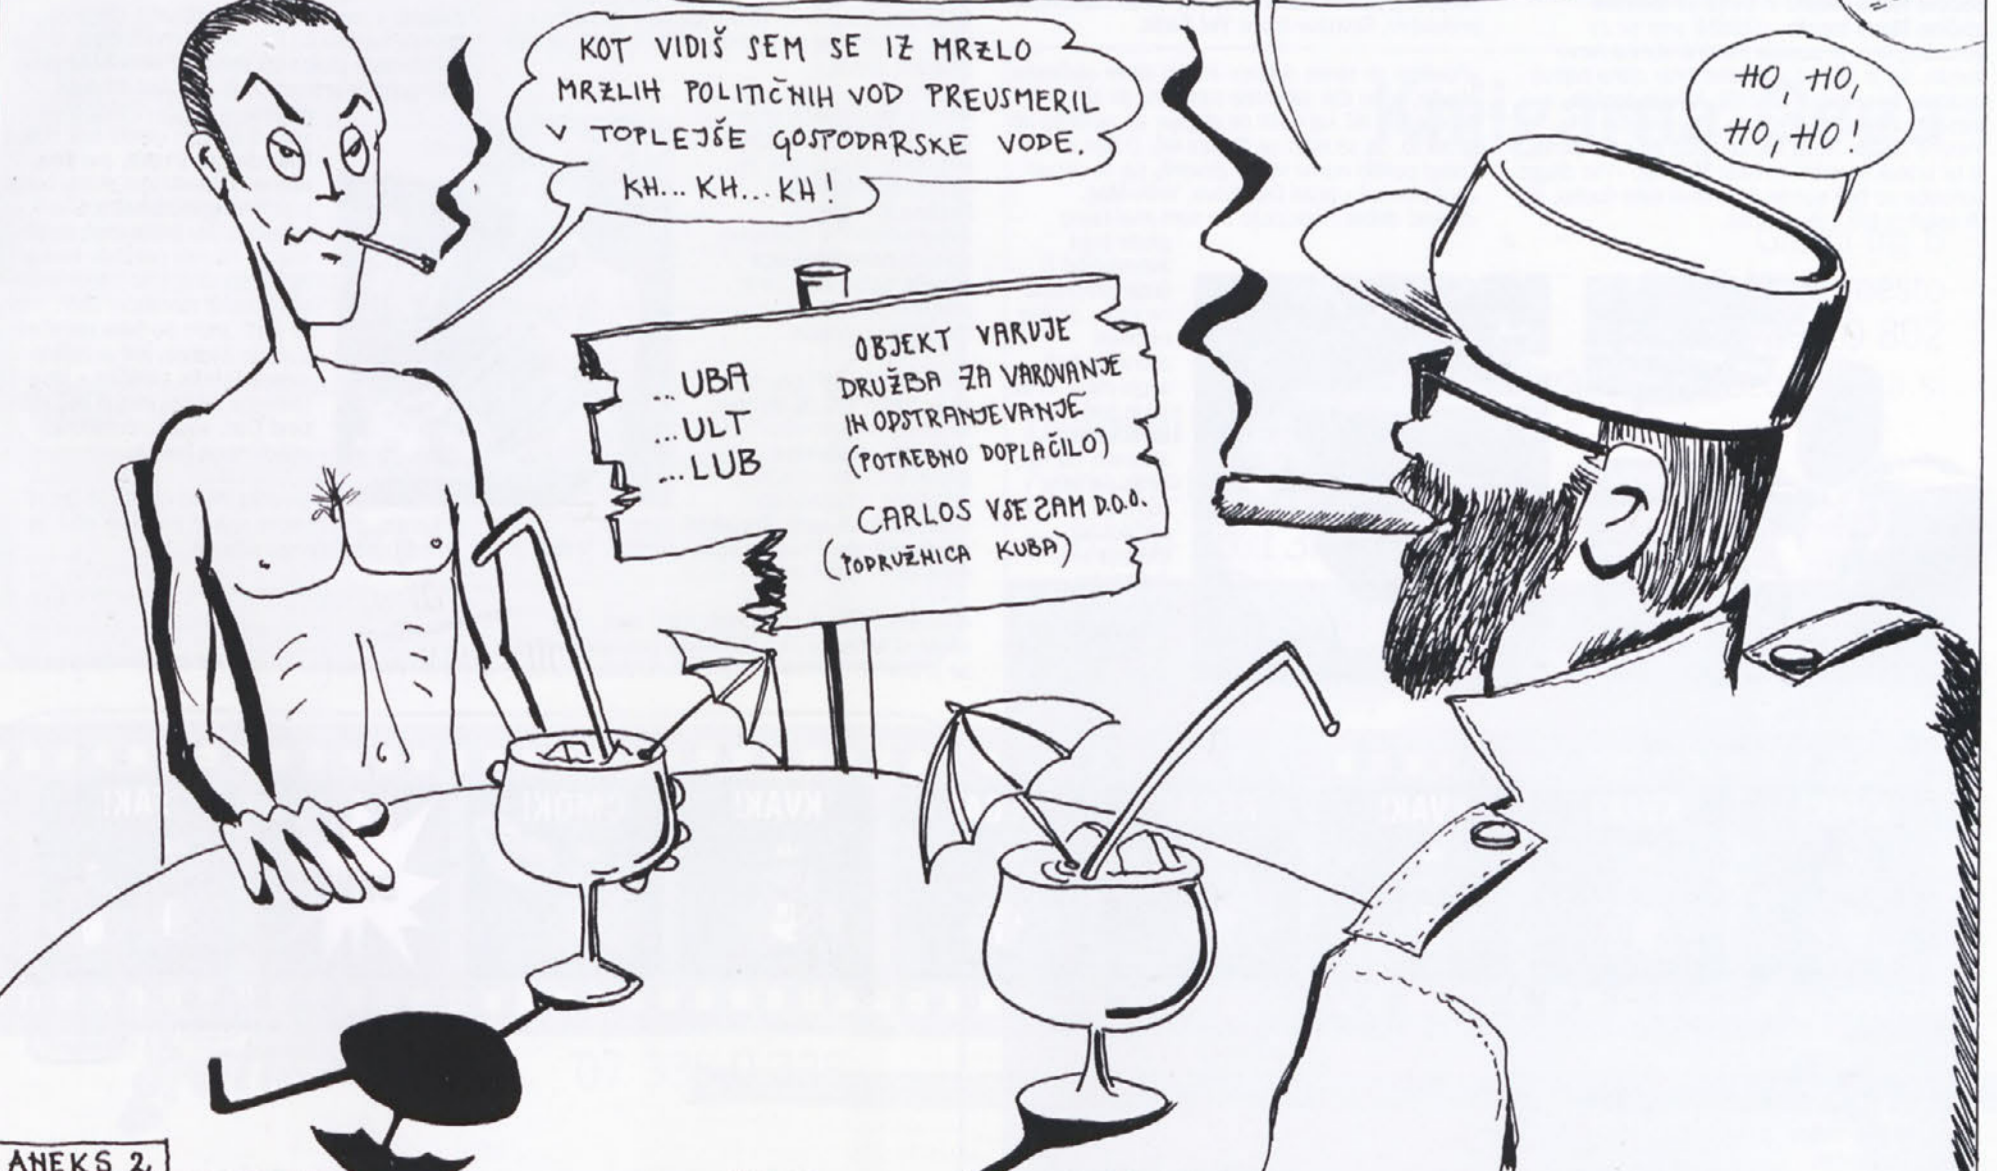 KOT VIDIŠ SEM SE IZ MRZLO
MRZLIH POLITIČNIH VOD PREUSMERIL
V TOPLEJŠE GOSPODARSKE VODE.
KH... KH... KH!
HO, HO,
HO, HO!
...UBA
...ULT
...LUB
OBJEKT VARUJE
DRUŽBA ZA VAROVANJE
IN ODSTRANJEVANJE
(POTREBNO DOPLAČILO)
CARLOS VSE ZAM D.O.O.
(PODRUŽNICA KUBA)
ANEKS 2.